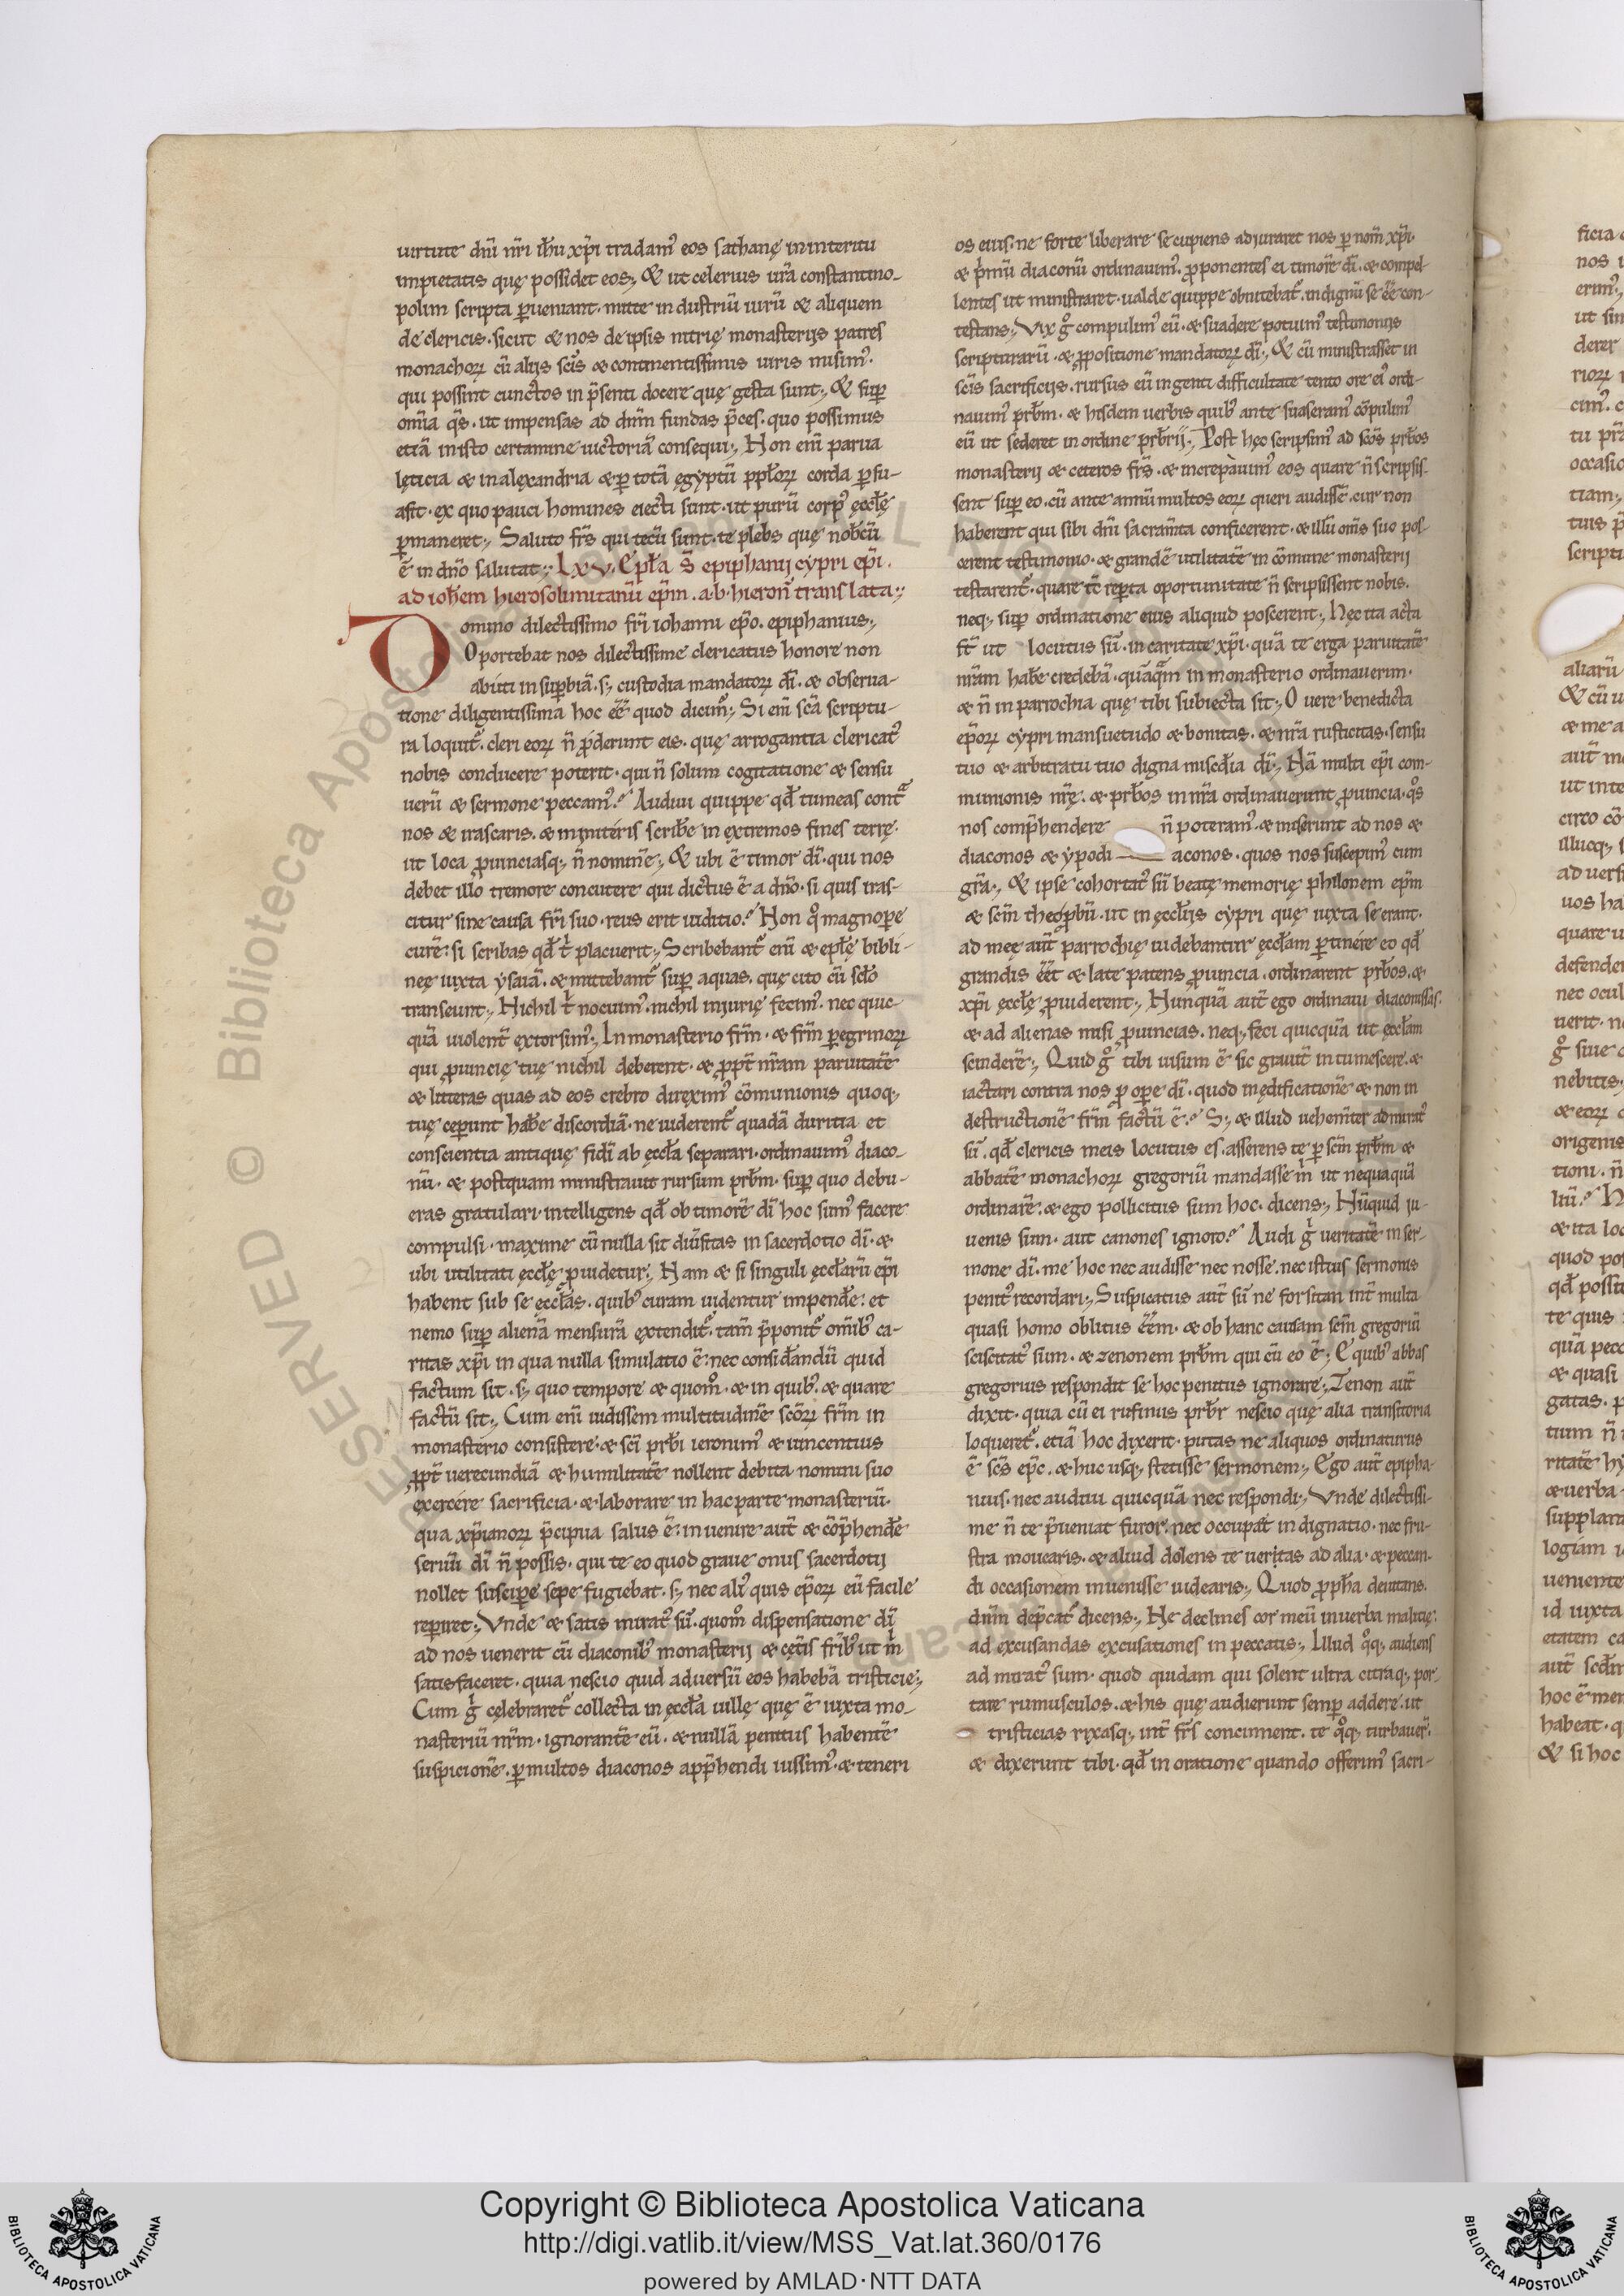 uirtute dñi nr̃i ih̃u xp̃i tradam᾽ eos sathanę in interitu
impietatis quę possidet eos; & ut celerius ur̃a constantino-
polim scripta ꝑueniant. mitte industriũ uirũ & aliquem
de clericis. sicut & nos de ipsis nitrię monasterijs patres
monachoꝝ cũ alijs scĩs & continentissimis uiris misim᾽.
qui possint cunctos in p̃senti docere quę gesta sunt; & suꝑ
om̃ia q̃s. ut impensas ad dnm̃ fundas p̃ces. quo possimus
etiã in isto certamine uictoriã consequi; Non enĩ parua
lęticia & in alęxandria & ꝑ totã ęgyptũ ppl̃oꝝ corda ꝑfu-
asit. ex quo pauci homines eiecti sunt. ut purũ corp᾽ ęccłę
ꝑmaneret; Saluto fr̃s qui tecũ sunt. te plebs quę nob̃cũ
ẽ in dño salutat; LXV. Epła S̃ epiphanij cypri ep̃i.
ad ioh̃em hierosolimitanũ ep̃m. a. b. hieron̄ translata;
Domino dilectissimo fr̃i iohanni ep̃o. epiphanius;
Oportebat nos dilectissime clericatus honore non
abuti in suꝑbiã. s; custodia mandatoꝝ dĩ. & obserua-
tione diligentissima hoc eẽ quod dicim᾽; Si enĩ scã scriptu-
ra loquit̃. cleri eoꝝ ñ ꝓderunt eis. quę arrogantia clericat᾽
nobis conducere poterit. qui ñ solum cogitatione & sensu
uerũ & sermone peccam᾽? Audiui quippe qđ tumeas cont̃
nos & irascaris. & miniteris scribe in extremos fines terrę.
ut loca ꝓuinciasq; ñ nomin̄e; & ubi ẽ timor dĩ. qui nos
debet illo tremore concutere qui dictus ẽ a dn̄o. si quis iras-
citur sine causa fr̃i suo. reus erit iuditio? Non qͦ magnoꝑe
curẽ. si scribas qđ t᾽ placuerit; Scribebant̃ enĩ & epłę bibli-
nee iuxta ysaiã. & mittebant̃ suꝑ aquas. quę cito cũ scło
transeunt; Nichil t᾽ nocuim᾽. nichil iniurię fecim᾽. nec quic-
quã uiolent̃ extorsim᾽; In monasterio fr̃m. & fr̃m ꝑegrinoꝝ
qui ꝓuincię tuę nichil deberent. & ꝓpt̃ nr̃am paruitatẽ
& litteras quas ad eos crebro direxim᾽ cõmunionis quoq;
tuę ceperunt hab̃e discordiã. ne uiderent̃ quadã duritia et
conscientia antiquę fidĩ ab ęccła separari. ordinauim᾽ diaco-
nũ. & postquam ministrauit rursum prb̃m. suꝑ quo debu-
eras gratulari. intelligens qđ ob timorẽ dĩ hoc sum᾽ facere
compulsi. maxime cũ nulla sit diũsitas in sacerdotio dĩ. &
ubi utilitati ęccłę ꝓuidetur; Nam & si singuli ęccłarũ ep̃i
habent sub se ęccłas. quib᾽ curam uidentur impende᾽. et
nemo suꝑ alienã mensurã extendit̃. tam̃ p̃ponit̃ om̃ib᾽ ca-
ritas xp̃i in qua nulla simulatio ẽ. nec consid̃andũ quid
factum sit. s; quo tempore & quomͦ. & in quib᾽. & quare
factũ sit; Cum enĩ uidissem multitudin̄e scõꝝ fr̃m in
monasterio consistere. & scĩ prb̃i ieronim᾽ & uincentius
ꝓpt̃ uerecundiã & humilitatẽ nollent debita nomini suo
exercere sacrificia. & laborare in hac parte monasteriũ.
qua xp̃ianoꝝ p̃cipua salus ẽ. inuenire aut̃ & cõp̃hende᾽
seruũ dĩ ñ possis. qui te eo quod graue onus sacerdotij
nollet suscipe᾽ sepe fugiebat. s; nec ali᾽ quis ep̃oꝝ eũ facile
reꝑiret; Vnde & satis mirat᾽ sũ. quomͦ dispensatione dĩ
ad nos uenerit cũ diaconib᾽ monasterij & cẽtis fr̃ib᾽ ut m᾽
satisfaceret. quia nescio quid aduersũ eos habebã tristicie;
Cum g᾽ celebraret̃ collecta in ęccła uillę quę ẽ iuxta mo-
nasteriũ nr̃m. ignorantẽ eũ. & nullã penitus habentẽ
suspicionẽ. ꝑ multos diaconos app̃hendi iussim᾽. & teneri
os eius. ne forte liberare se cupiens adiuraret nos ꝑ nom̃ xp̃i.
& p᾽mũ diaconũ ordinauim᾽. ꝓponentes ei timorẽ dĩ. & compel-
lentes ut ministraret. ualde quippe obnitebat̃. indignũ se eẽ con-
testans; Vix gͦ compulim᾽ eũ. & suadere potuim᾽ testimonijs
scripturarũ. & ꝓpositione mandatoꝝ dĩ; & cũ ministrasset in
scĩs sacrificijs. rursus eũ ingenti difficultate tento ore ei᾽ ordi-
nauim᾽ prb̃m. & hisdem uerbis quib᾽ ante suaseram᾽ cõpulim᾽
eũ ut sederet in ordine prb̃rij; Post hęc scripsim᾽ ad scõs prb̃os
monasterij & ceteros fr̃s. & increpauim᾽ eos quare ñ scripsis-
sent suꝑ eo. cũ ante annũ multos eoꝝ queri audissẽ. cur non
haberent qui sibi dñi sacram̃ta conficerent. & illũ om̃s suo pos-
cerent testimonio. & grandẽ utilitatẽ in cõmune monasterij
testarent̃. quare tc̃ reꝑta oportunitate ñ scripsissent nobis.
neq; suꝑ ordinatione eius aliquid poscerent; Hęc ita acta
st̃ ut locutus sũ. in caritate xp̃i. quã te erga paruitatẽ
nr̃am hab̃e credebã. quãq̃m in monasterio ordinauerim.
& ñ in parrochia quę tibi subiecta sit; O uere benedicta
ep̃oꝝ cypri mansuetudo & bonitas. & nr̃a rusticitas. sensu
tuo & arbitratu tuo digna misc̃dia dĩ; Nã multi ep̃i com-
munionis nr̃ę. & prb̃os in nr̃a ordinauerunt ꝓuincia. qͦs
nos comp̃hendere ñ poteram᾽. & miserunt ad nos &
diaconos & ypodi aconos. quos nos suscepim᾽ cum
gr̃a; & ipse cohortat᾽ sũ beatę memorię philonem ep̃m
& scm̃ theoprobũ. ut in ęccłijs cypri quę iuxta se erant.
ad meę aut̃ parrochię uidebantur ęccłam ꝑtinere eo qđ
grandis eẽt & late patens ꝓuincia. ordinarent prb̃os. &
xp̃i ęccłę ꝓuiderent; Nunquã aut̃ ego ordinaui diaconissas.
& ad alienas misi ꝓuincias. neq; feci quicquã ut ęccłam
scinderẽ; Quid gͦ tibi uisum ẽ sic grauit̃ intumescere. &
iactari contra nos ꝓ oꝑe dĩ. quod in ędificationẽ & non in
destructionẽ fr̃m factũ ẽ? S; & illud uehem̃ter admirat᾽
sũ. qđ clericis meis locutus es. asserens te ꝑ scm̃ prb̃m &
abbatẽ monachoꝝ gregoriũ mandasse m᾽ ut nequaquã
ordinarẽ. & ego pollicitus sum hoc. dicens; Nũquid iu-
uenis sum. aut canones ignoro? Audi g᾽ ueritatẽ in ser-
mone dĩ. me hoc nec audisse nec nosse. nec istius sermonis
penit᾽ recordari; Suspicatus aut̃ sũ ne forsitan int̃ multa
quasi homo oblitus eẽm. & ob hanc causam scm̃ gregoriũ
sciscitat᾽ sum. & zenonem prb̃m qui cũ eo ẽ; E quib᾽ abbas
gregorius respondit se hoc penitus ignorare; Zenon aut̃
dixit. quia cũ ei rufinus prb̃r nescio quę alia transitoria
loqueret̃. etiã hoc dixerit. putas ne aliquos ordinaturus
ẽ scs̃ ep̃c. & huc usq; stetisse sermonem; Ego aut̃ epipha-
nius. nec audiui quicquã nec respondi; Vnde dilectissi-
me ñ te p̃ueniat furor. nec occupet indignatio. nec fru-
stra moueãris. & aliud dolens te ueritas ad alia. & peccan-
di occasionem inuenisse uidearis; Quod ꝓph̃a deuitans.
dnm̃ dep̃cat̃ dicens; Ne declines cor meũ in uerba malitię.
ad excusandas excusationes in peccatis; Illud qͦq; audiens
admirat᾽ sum. quod quidam qui solent ultra citraq; por-
tare rumusculos. & his quę audierunt semꝑ addere. ut
tristicias rixasq; int̃ fr̃s concinnent. te qͦq; turbauer̃.
& dixerunt tibi. qđ in oratione quando offerim᾽ sacri-
ficia
nos
erim᾽;
ut sim
derer
rioꝝ
cim᾽. c
tu pr̃
occasio
tiam;
tuis p̃
scriptu
aliarũ
& cũ u
& me a
aut̃ m
ut inte
circo cõ
illucq;
ad uersi
uos ha
quare u
defender
nec ocul
uerit. n
gͦ siue
nebitis.
& eoꝝ
origenis
tioni. ñ
liũ? N
& ita loc
quod pos
qđ possit
te quis
quã pecc
& quasi
gatas. p
tium ñ
ritatẽ hy
& uerba
supplant
logiam
ueniente
id iuxta
etatem ca
aut̃ scđm
hoc ẽ mem
habeat. q
& si hoc
© Biblioteca Apostolica Vaticana
Copyright © Biblioteca Apostolica Vaticana
http://digi.vatlib.it/view/MSS_Vat.lat.360/0176
powered by AMLAD·NTT DATA
BIBLIOTECA APOSTOLICA VATICANA
BIBLIOTECA APOSTOLICA VATICANA